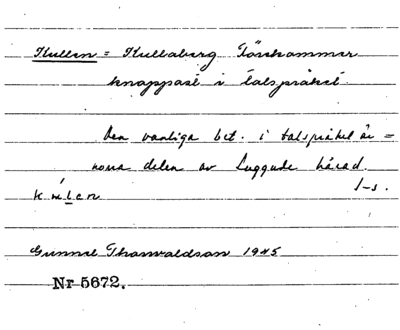 Kullen = Kullaberg Förekommer
knappast i talspråket.
Den vanliga bet. i talspråket är =
norra delen av Luggude härad.
l-s.
Gunnel Thorvaldson 1945
Nr 5672.